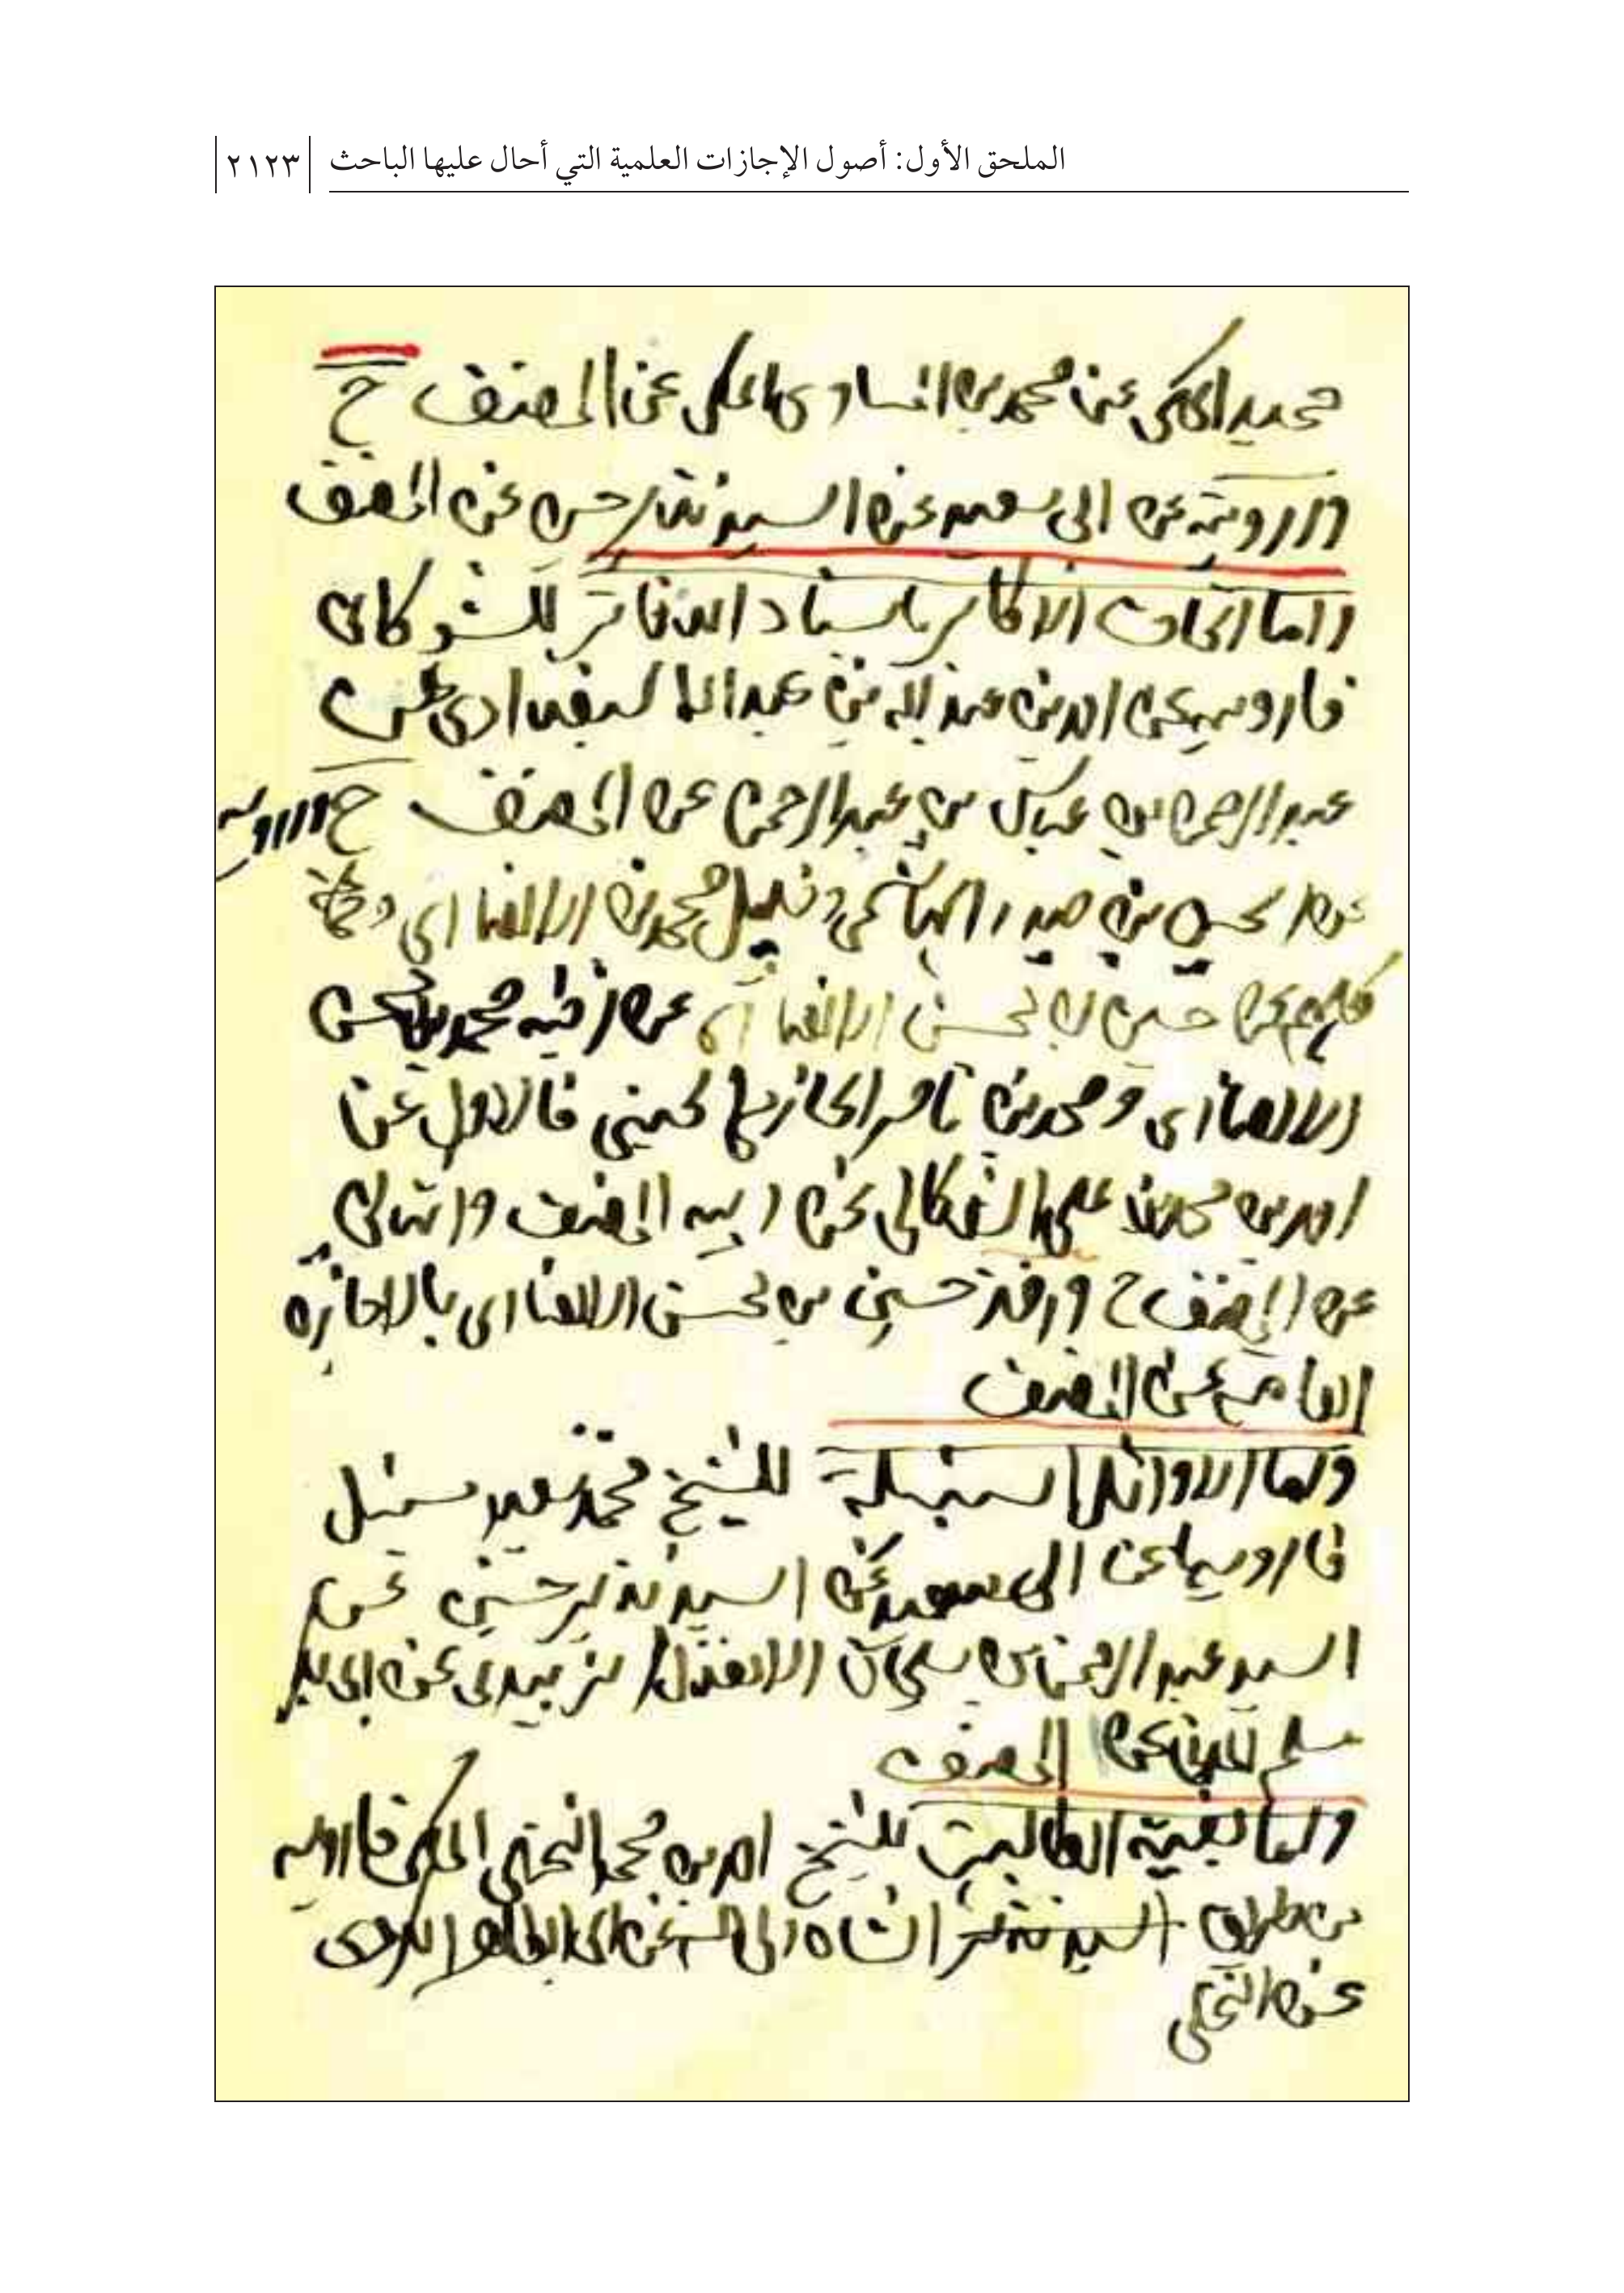 الملحق الأول: أصول الإجازات العلمية التي أحال عليها الباحث ٢١٢٣
حميد المكي عن محمد بن السنادي المكي عن المصنف ح
وارويه عن ابي سعيد عن السيد نذير حسين عن المصنف
واما اتحاف الاكابر باسناد الدفاتر للشوكاني
فارويه عن احمد بن عبد الله بن عبد البغدادي عن
عبد الرحمن بن عباس بن عبد الرحمن عن المصنف ح وارويه
عن حسين بن حيدر الهاشمي وخليل محمد بن الانصاري
كلهم عن حسين بن محسن الانصاري عن اخيه محمد بن محسن
الانصاري ومحمد بن ناصر الحازمي الحسني فالاول عن
احمد بن محمد بن علي الشوكاني عن ابيه المصنف والثاني
عن المصنف ح ورواه حسين بن محسن الانصاري بالاجازة
العامة عن المصنف
واما الاوائل السنبلية للشيخ محمد سعيد سنبل
فارويها عن ابي سعيد عن السيد نذير حسين عن
السيد عبد الرحمن بن سليمان الاهدل الزبيدي عن
عن المصنف
واما بغية الطالبين للشيخ احمد بن محمد النخلي المكي فارويه
من طريق السيد نذير الشاه ولي الله عن ابي الطاهر الكردي
عن النخلي